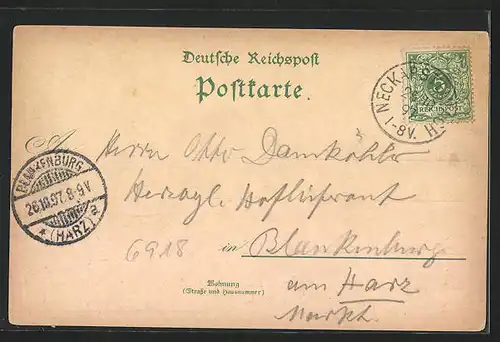 Deutsche Reichspost
Postkarte.
NECKAR
7-8V.
REICHSPOST
An
Herrn Otto Damköhler
Herzogl. Hoflieferant
BLANKENBURG
26.10.97.8-9V
* (HARZ) a
6918
in Blankenburg
am Harz
Markt.
Wohnung
(Straße und Hausnummer)